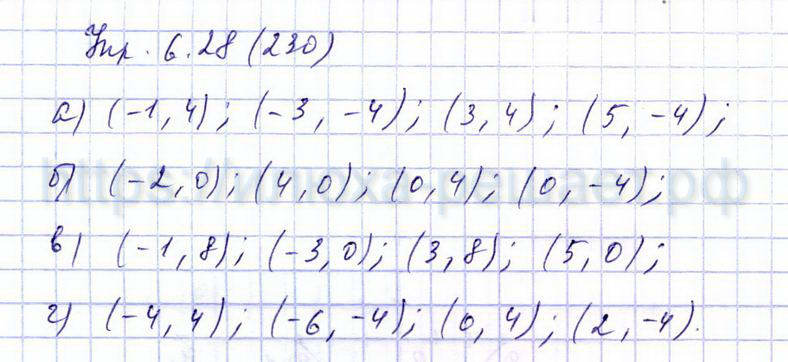 Упр. 6.28 (230)
а) (-1, 4); (-3, -4); (3, 4); (5, -4);
б) (-2, 0); (4, 0); (0, 4); (0, -4);
в) (-1, 8); (-3, 0); (3, 8); (5, 0);
г) (-4, 4); (-6, -4); (0, 4); (2, -4).